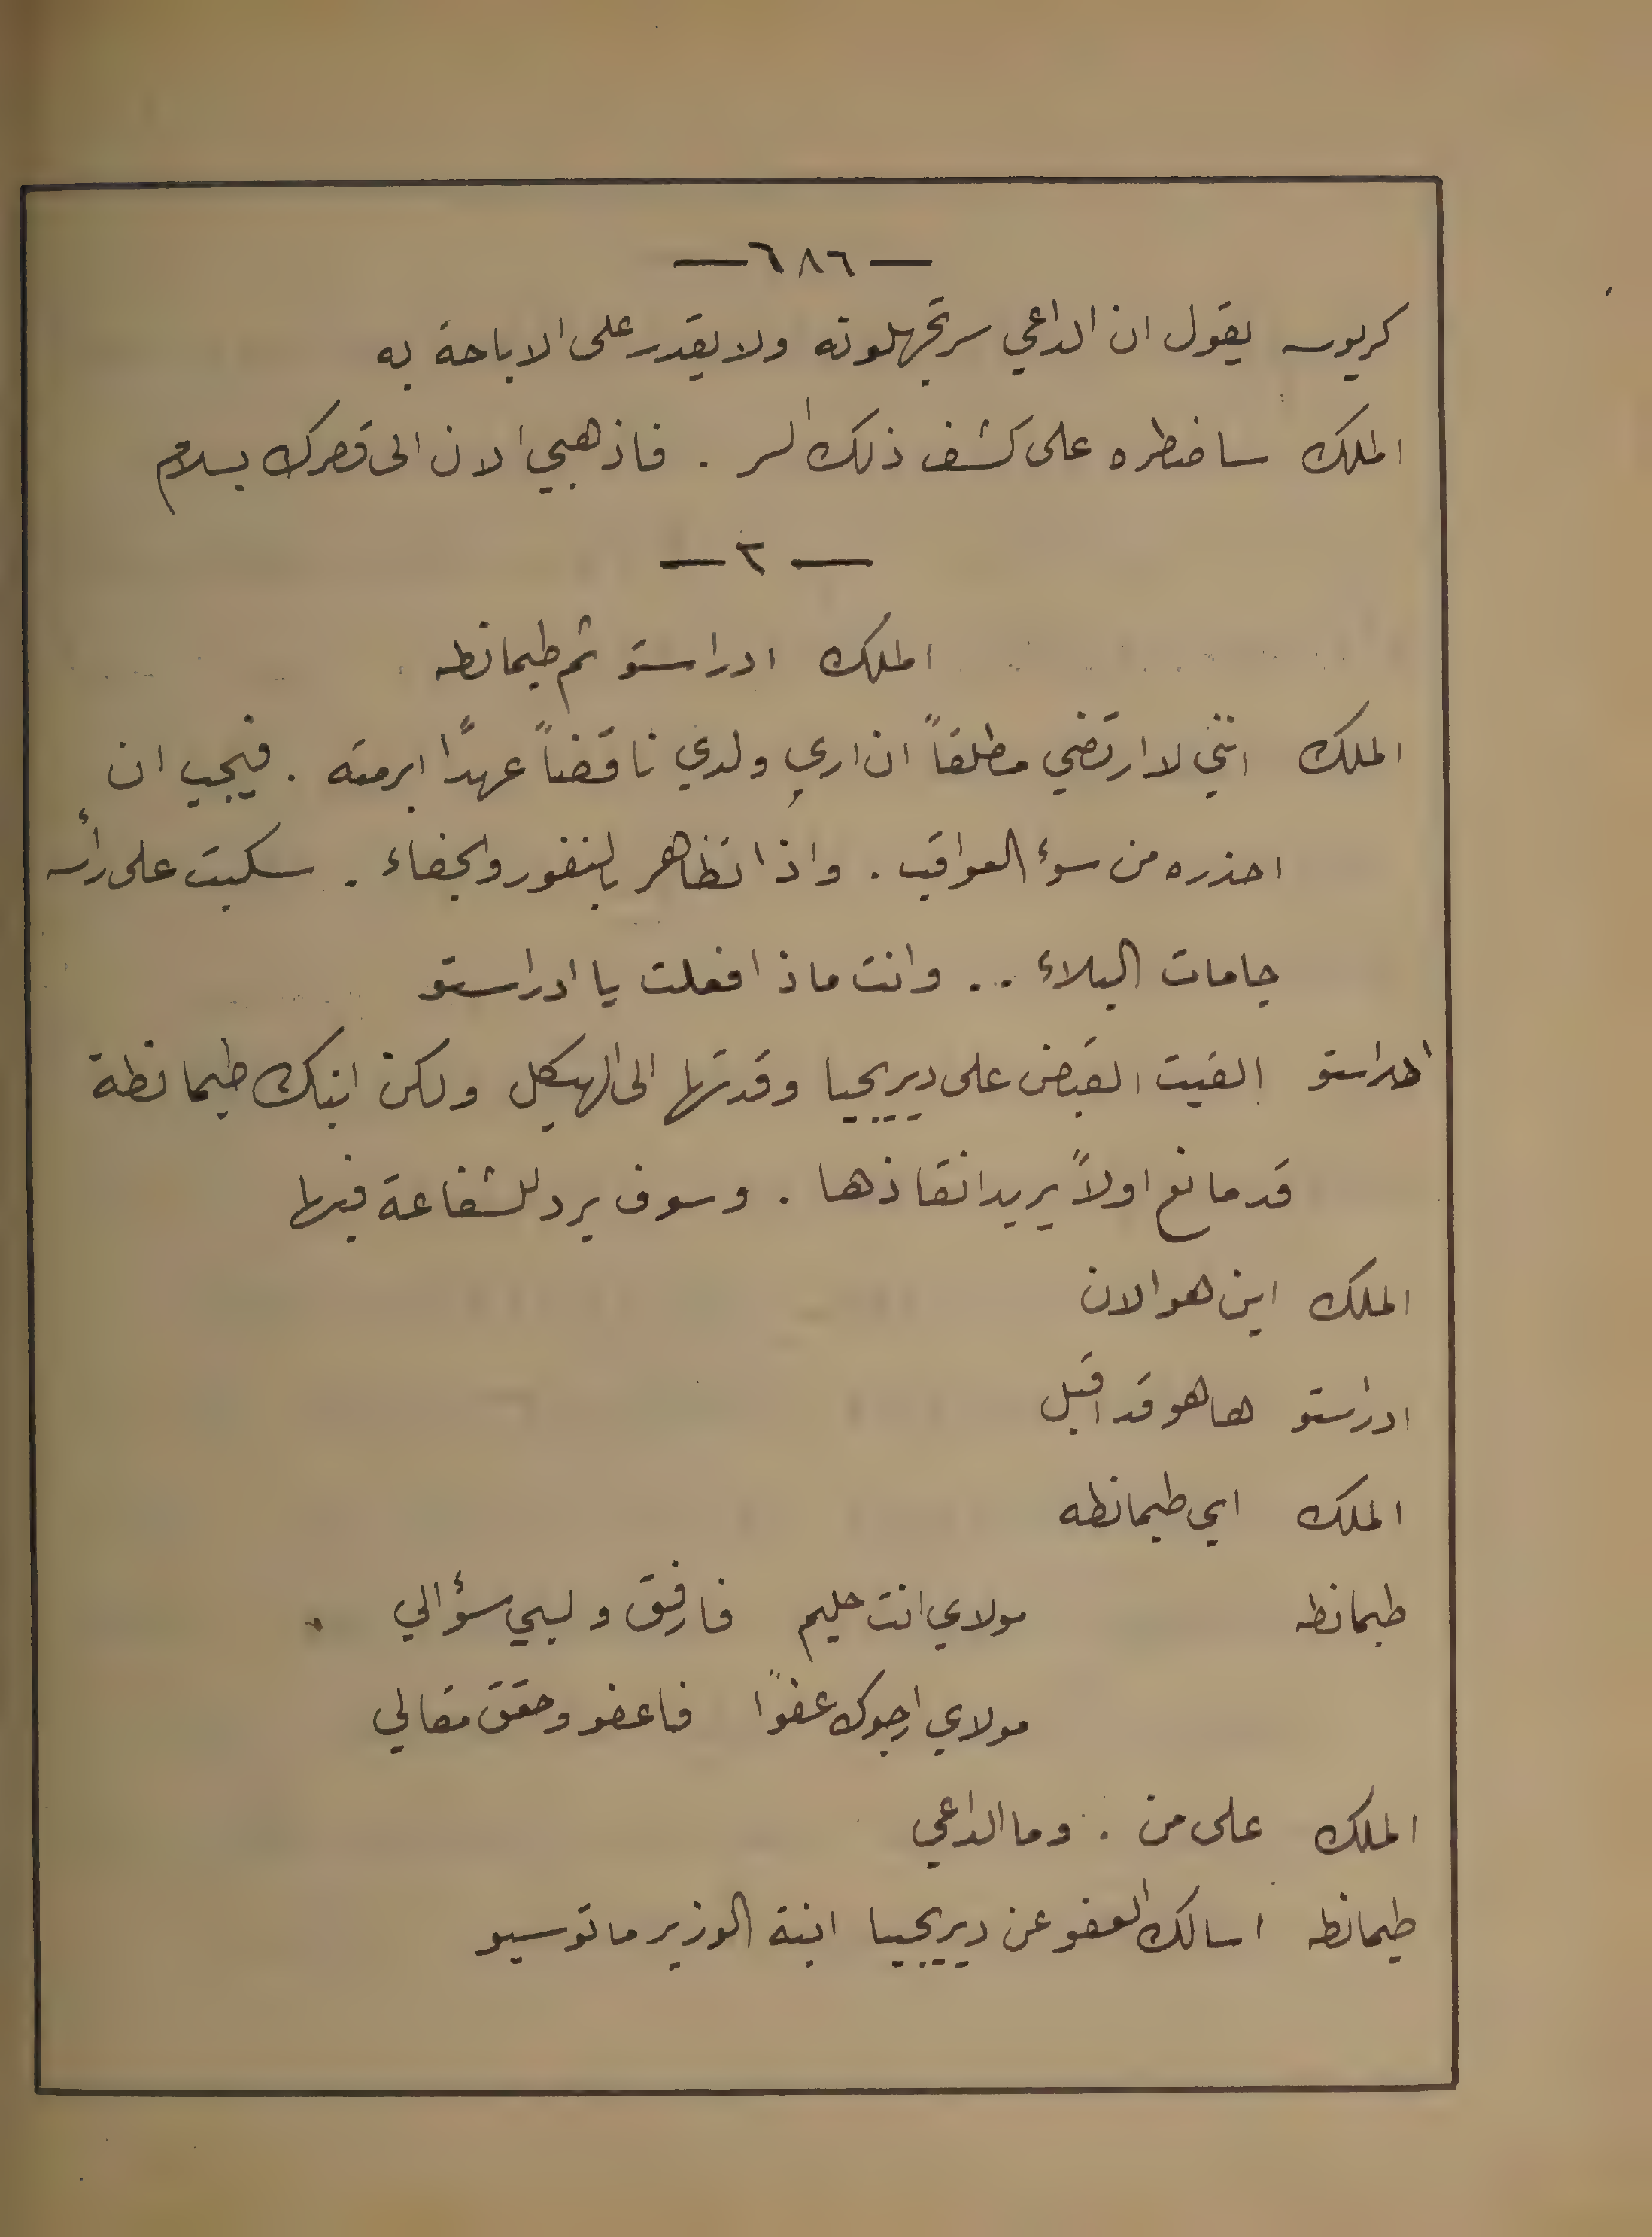 — ٦٨٦ —
كريوسه يقول ان الداعي سر تجهلونه ولا يقدر على الاباحة به
الملك ساضطره على كشف ذلك السر . فاذهبي الان الى قصرك بسلام
— ٢ —
الملك ادراستو ثم طيمانطه
الملك انني لا ارتضي مطلقاً ان اري ولدي ناقضاً عهدًا ابرمته . فيجب ان
احذره من سوء العواقب . واذا تظاهر بالنفور والجفاء . سكبت على رأسه
جامات البلاء .. وانت ماذا فعلت يا ادراستو
ادراستو القيت القبض على ديريجيا وقدتها الى الهيكل ولكن ابنك طيمانطة
قد مانع اولاً يريد انقاذها . وسوف يرد للشفاعة فيها
الملك اين هو الان
ادراستو ها هو قد اقبل
الملك اي طيمانطه
طيمانطه مولاي انت حليم فارفق ولبي سؤالي
مولاي ارجوك عفوًا فاعفو وحقق مقالي
الملك على من . وما الداعي
طيمانطه اسالك العفو عن ديريجيا ابنة الوزير ماتوسيو